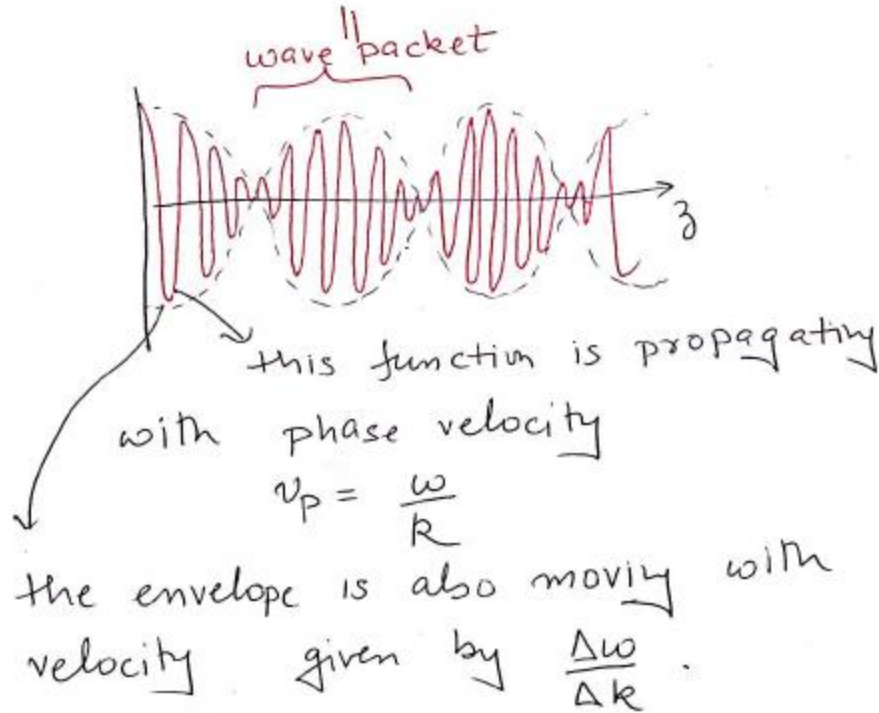 wave "packet
z
this function is propagating
with phase velocity
v_p = ω/k
the envelope is also moving with
velocity given by Δω/Δk .